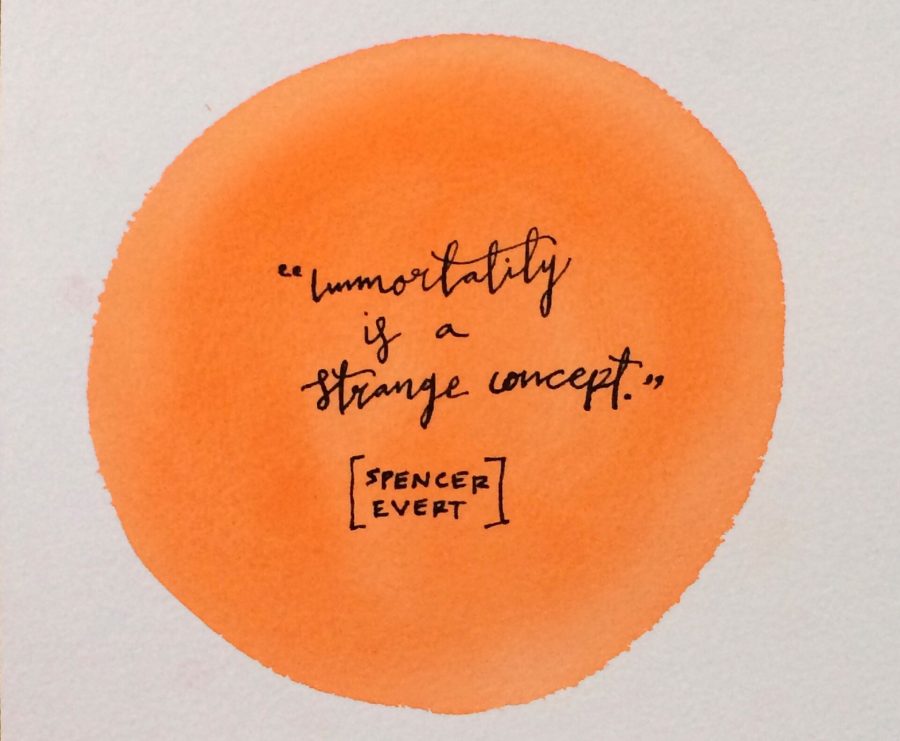 “Immortality
is a
strange concept.”
[SPENCER
EVERT]